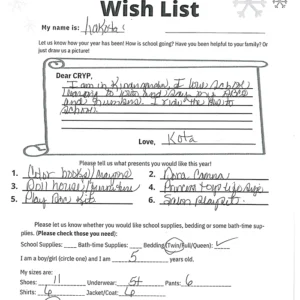 Wish List
My name is: Lakota
Let us know how your year has been! How is school going? Have you been helpful to your family? Or
just draw us a picture!
Dear CRYP,
I am in Kindergarden. I love School
and numbers. I ride the bus to
School.
Love, Kota
Please tell us what presents you would like this year!
1. Color books/crayons 2.
3. Doll house/furniture 4.
5. Play Doh Kits 6. Salon Playset
Please let us know whether you would like school supplies, bedding or some bath-time sup-
plies. (Please check those you need):
School Supplies: Bath-time Supplies: Bedding (Twin/Full/Queen):
I am a boy/girl (circle one) and I am 5 years old.
My sizes are:
Shoes: 11 Underwear: 5t Pants: 6
Shirts: 6 Jacket/Coat: 6